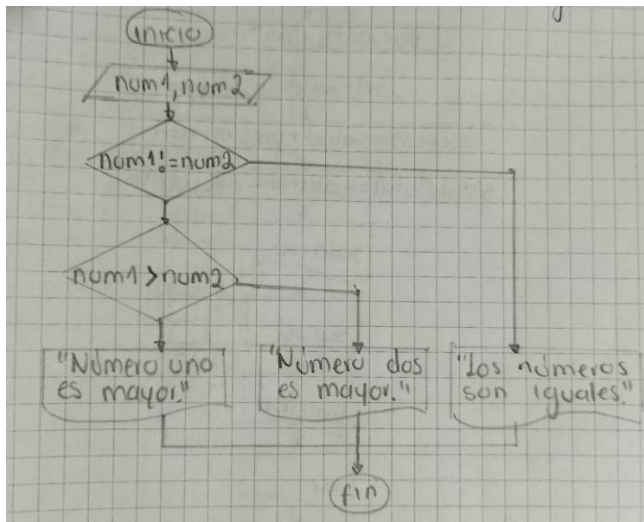 inicio
num1, num2
num1!=num2
num1>num2
"Número uno
es mayor."
"Número dos
es mayor."
"Los números
son iguales."
fin